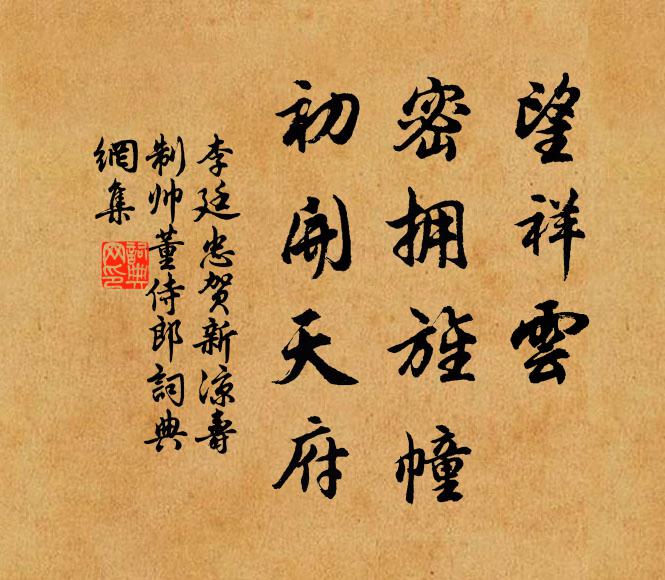 望祥雲
密拥旌幢
初開天府
李廷忠贺新凉壽
制帅董侍郎詞典
網集
詞典網印